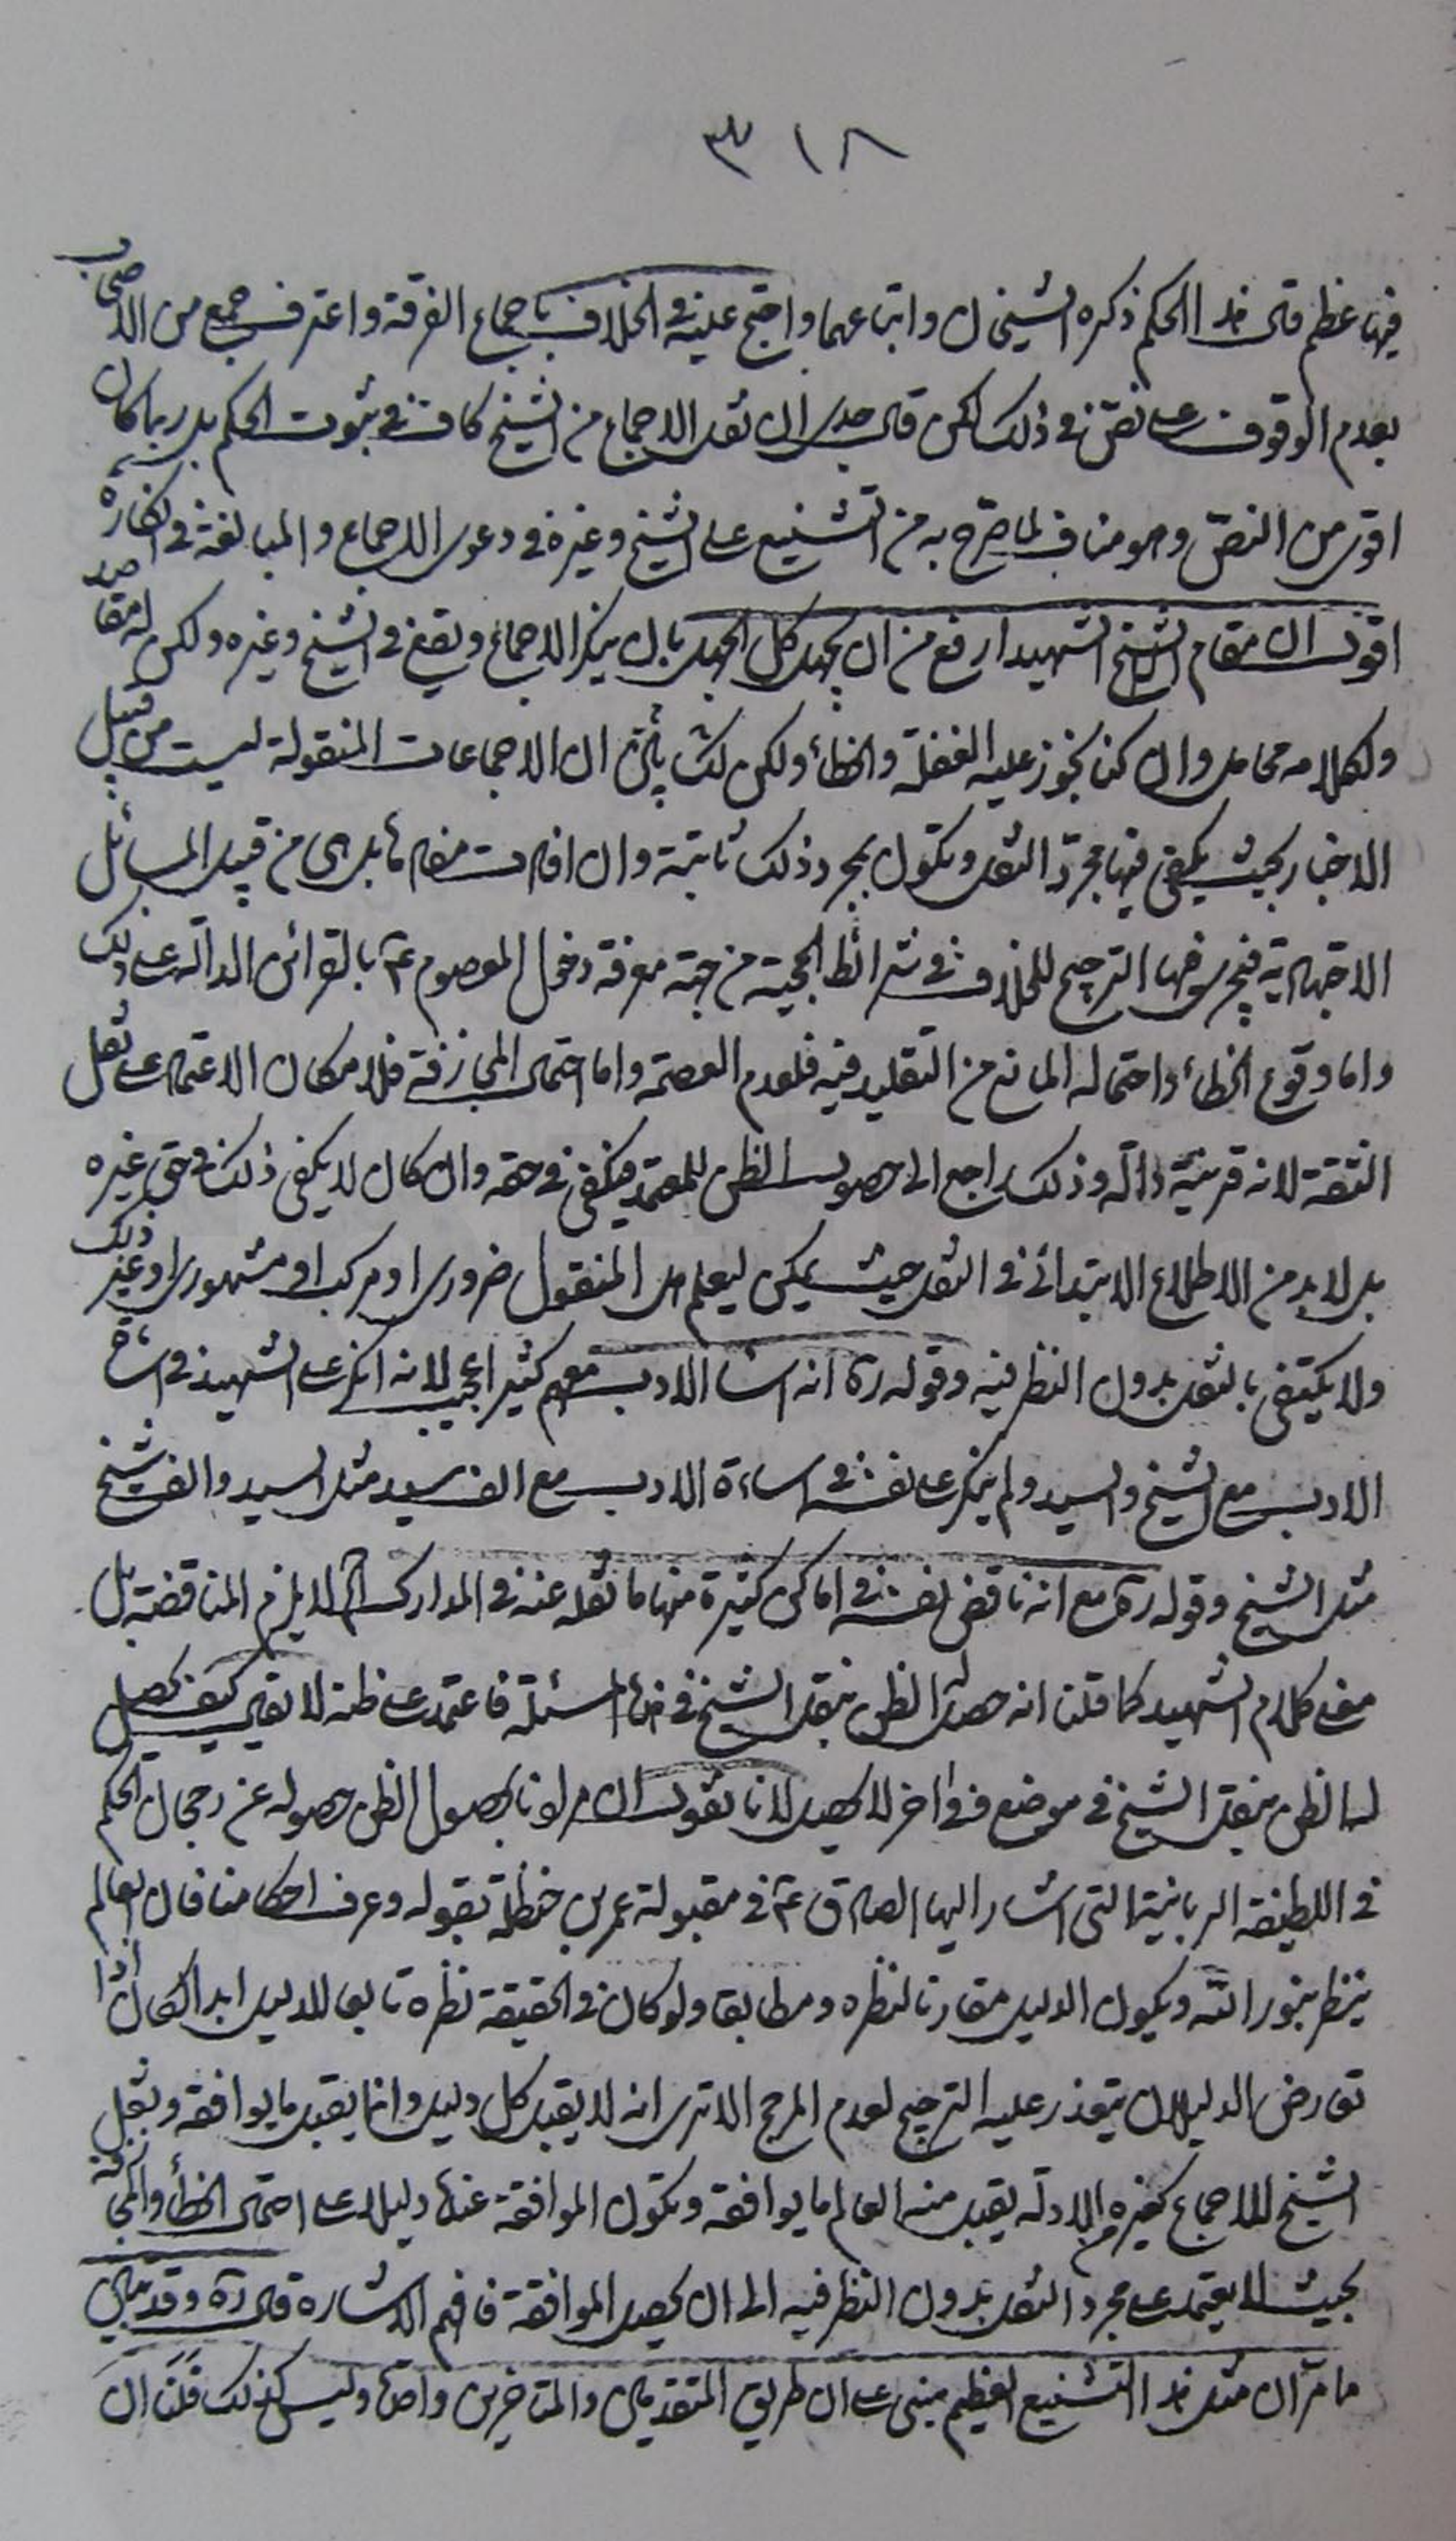 ٣١٨
فيها عظم قال هذا الحكم ذكره الشيخان واتباعهما واحتج عليه في الخلاف باجماع الفرقة واعترف جمع من الاصحاب
بعدم الوقوف على نص في ذلك لكن قال جدي ان نقل الاجماع من الشيخ كاف في ثبوت الحكم بل ربما كان
اقوى من النص وهو مناف لما صرح به من التشنيع على الشيخ وغيره في دعوى الاجماع والمبالغة في انكاره
اقول ان مقام الشيخ الشهيد ارفع من ان يجهل كل الجهل بان ينكر الاجماع ويقع في الشيخ وغيره ولكن له مقاصد
ولكلامه محامل وان كنا نجوز عليه الغفلة والخطأ ولكن الاجماعات المنقولة ليست من قبيل
الاخبار بحيث يكفي فيها مجرد النقل وتكون بمجرد ذلك ثابتة وان افادت مفادها بل هي من قبيل المسائل
الاجتهادية فيجري فيها الترجيح للخلاف في شرائط الحجية من جهة معرفة دخول المعصوم ع بالقرائن الدالة على ذلك
واما وقوع الخطأ واحتماله المانع من التقليد فيه فلعدم العصمة واما احتمال المجازفة فلامكان الاعتماد على نقل
الثقة لانه قرينة دالة وذلك راجع الى حصول الظن للمعتمد فيكفي في حقه وان كان لا يكفي ذلك في حق غيره
بل لا بد من الاطلاع الابتدائي في النقل حيث يمكن ليعلم هل المنقول ضروري او مركب او مشهوري او غير ذلك
ولا يكتفى بالنقل بدون النظر فيه وقوله ره انه اساء الادب معهم كثيرا عجيب لانه انكر على الشهيد في اساءة
الادب مع الشيخ والسيد ولم ينكر على نفسه في اساءة الادب مع الف سيد مثل السيد والف شيخ
مثل الشيخ وقوله ره مع انه ناقض نفسه في اماكن كثيرة منها ما نقله عنه في المدارك الخ لا يلزم المناقضة بل
معنى كلام الشهيد كما قلنا انه حصل له الظن بنقل الشيخ في هذه المسئلة فاعتمد على ظنه لا يقال كيف يحصل
له الظن بنقل الشيخ في موضع وفي اخر لا يحصل لانا نقول ان مرادنا بحصول الظن حصوله عن رجحان الحكم
في اللطيفة الربانية التي اشار اليها الصادق ع في مقبولة عمر بن حنظلة بقوله وعرف احكامنا فان العالم
ينظر بنور الله ويكون الدليل مقارنا لنظره ومطابقا ولو كان في الحقيقة نظره تابعا للدليل ابدا لكان اذا
تعارض الدليلان يتعذر عليه الترجيح لعدم المرجح الا ترى انه لا يقبل كل دليل وانما يقبل ما يوافقه ونقل
الشيخ للاجماع كغيره من الادلة يقبل منه العالم ما يوافقه وتكون الموافقة عنده دليلا على احتمال الخطأ والمجازفة
بحيث لا يعتمد على مجرد النقل بدون النظر فيه الى ان يحصل الموافقة فافهم الاشارة قال ره وقد
ما مر ان مثل هذا التشنيع العظيم مبني على ان طريق المتقدمين والمتاخرين واحد وليس كذلك قلنا ان